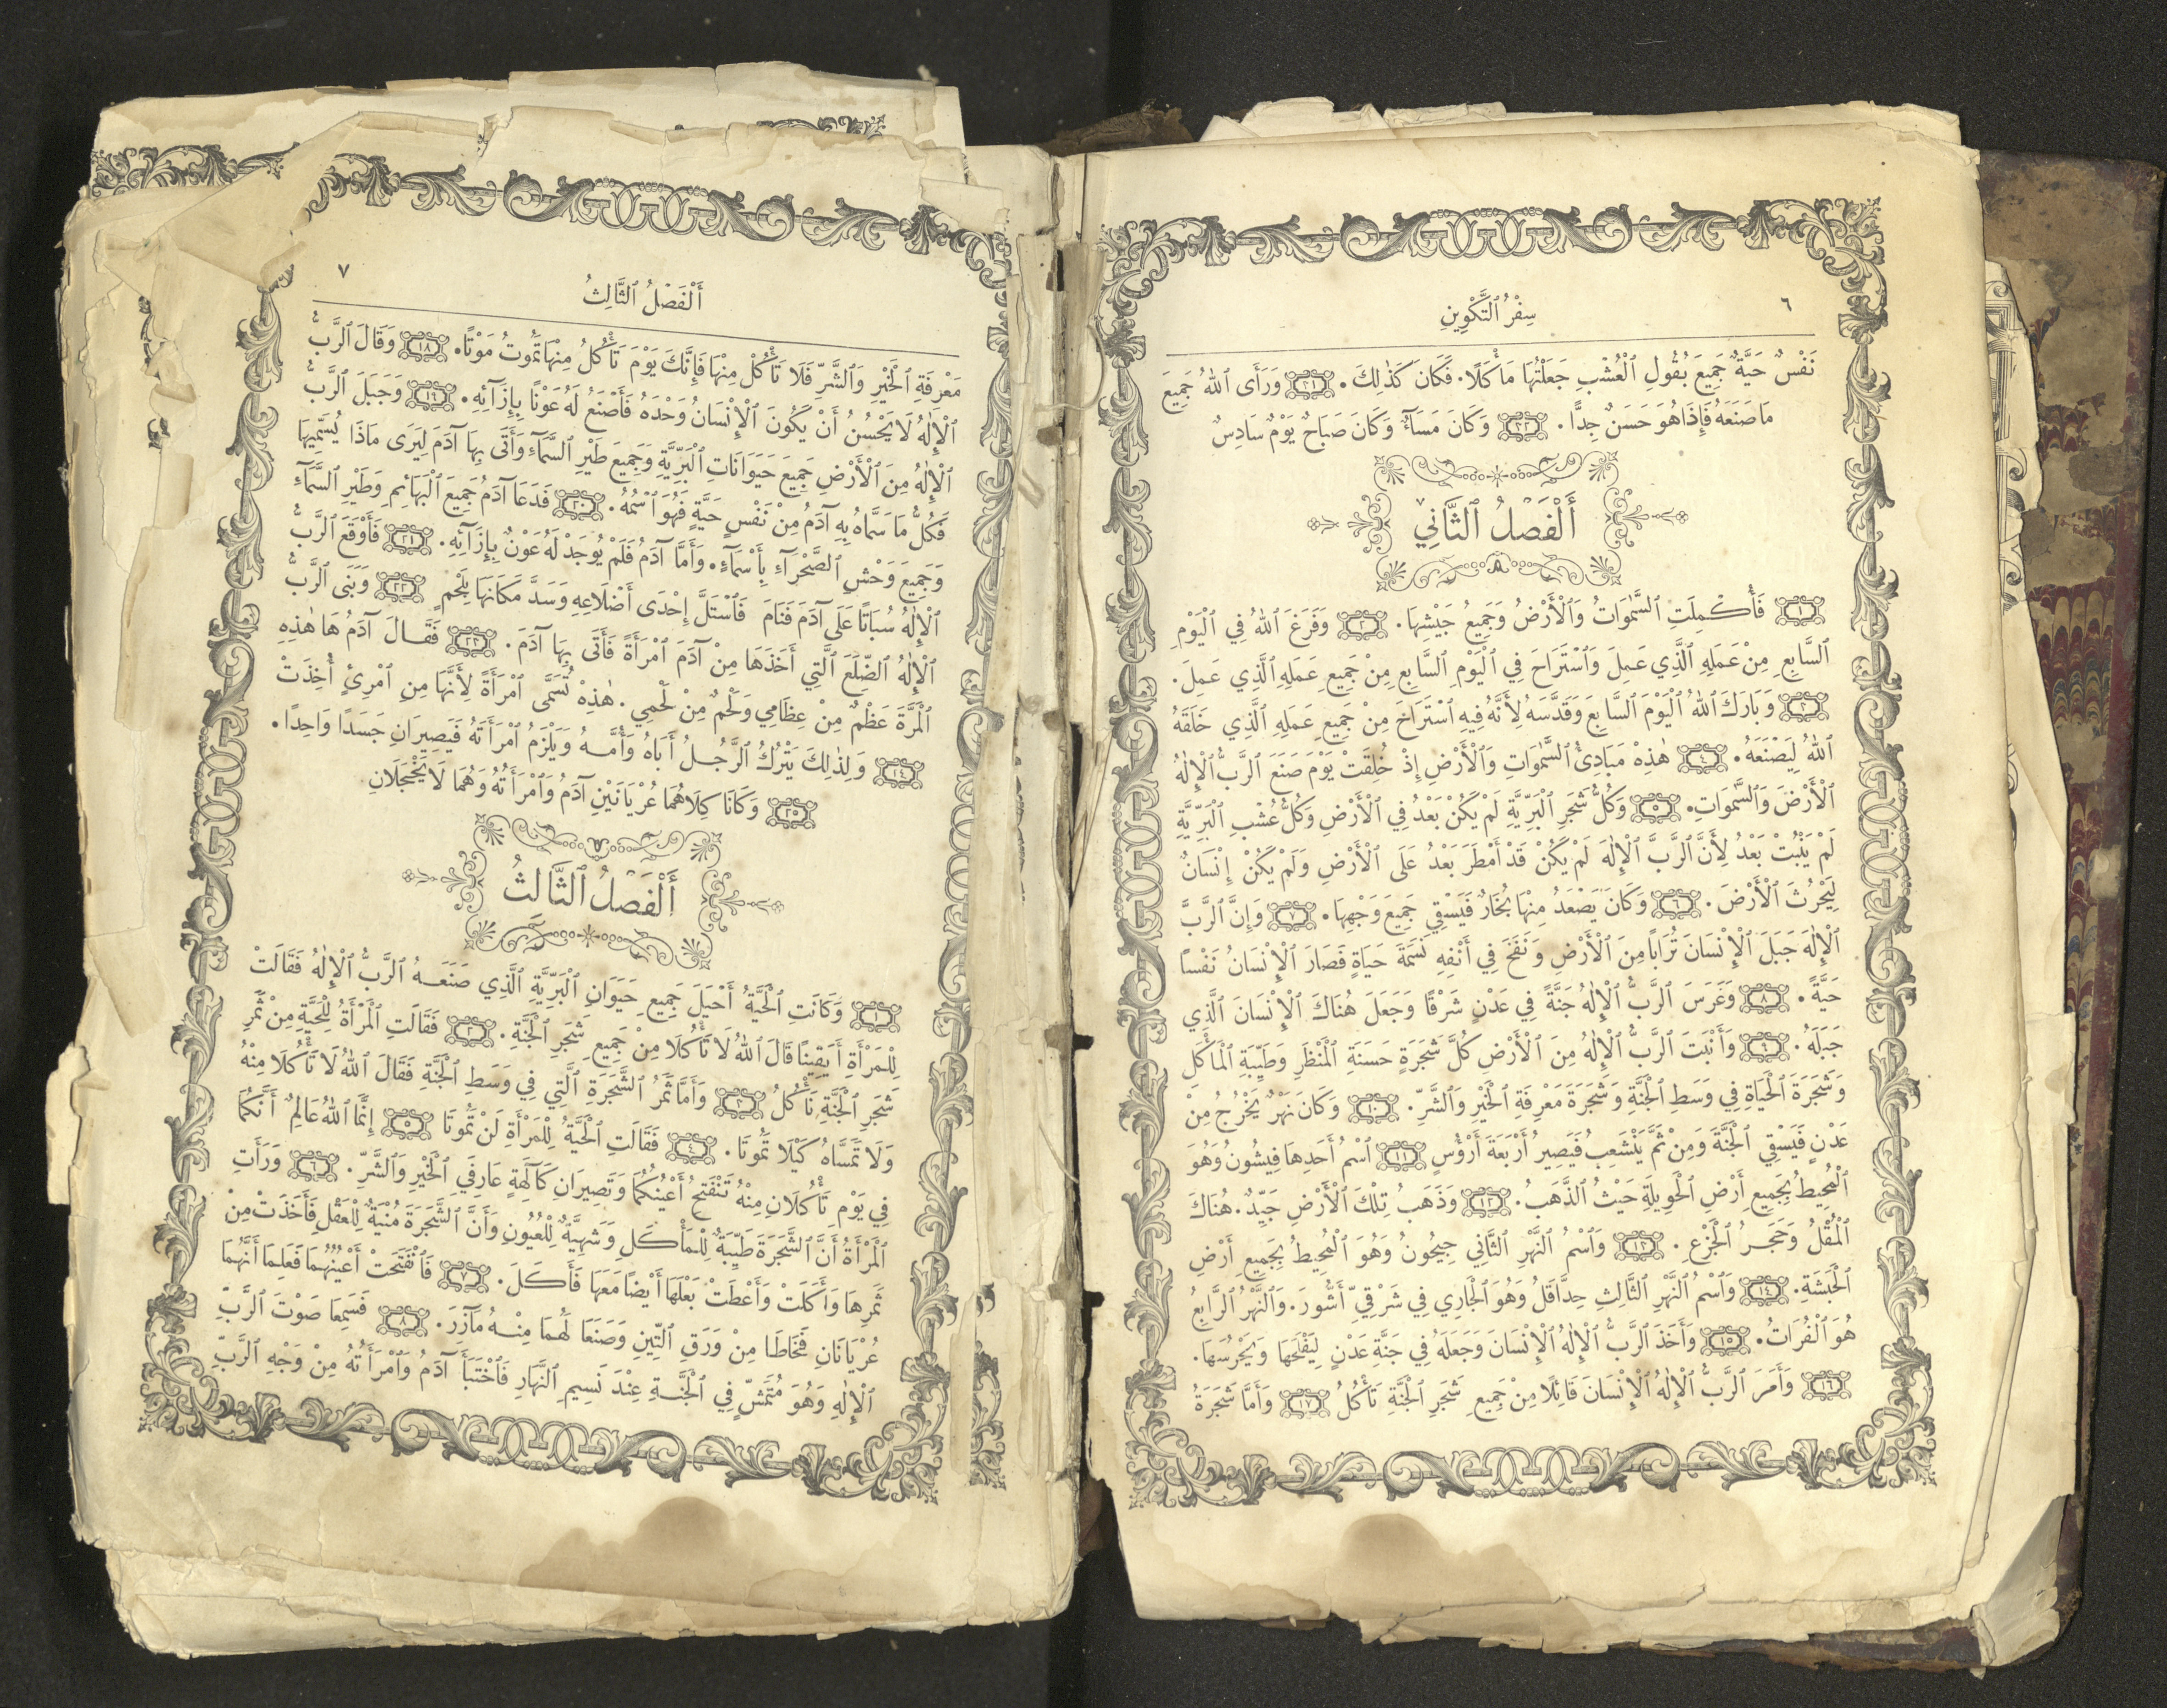 ٦
سِفْرُ ٱلتَّكْوِينِ
نَفْسٌ حَيَّةٌ جَمِيعَ بُقُولِ ٱلْعُشْبِ جَعَلْتُهَا مَأْكَلًا. فَكَانَ كَذٰلِكَ. ٣١ وَرَأَى ٱللهُ جَمِيعَ
مَا صَنَعَهُ فَإِذَا هُوَ حَسَنٌ جِدًّا. ٣٢ وَكَانَ مَسَآءٌ وَكَانَ صَبَاحٌ يَوْمٌ سَادِسٌ
أَلْفَصْلُ ٱلثَّانِي
١ فَأُكْمِلَتِ ٱلسَّمٰوَاتُ وَٱلْأَرْضُ وَجَمِيعُ جَيْشِهَا. ٢ وَفَرَغَ ٱللهُ فِي ٱلْيَوْمِ
ٱلسَّابِعِ مِنْ عَمَلِهِ ٱلَّذِي عَمِلَ وَٱسْتَرَاحَ فِي ٱلْيَوْمِ ٱلسَّابِعِ مِنْ جَمِيعِ عَمَلِهِ ٱلَّذِي عَمِلَ.
٣ وَبَارَكَ ٱللهُ ٱلْيَوْمَ ٱلسَّابِعَ وَقَدَّسَهُ لِأَنَّهُ فِيهِ ٱسْتَرَاحَ مِنْ جَمِيعِ عَمَلِهِ ٱلَّذِي خَلَقَهُ
ٱللهُ لِيَصْنَعَهُ. ٤ هٰذِهْ مَبَادِئُ ٱلسَّمٰوَاتِ وَٱلْأَرْضِ إِذْ خُلِقَتْ يَوْمَ صَنَعَ ٱلرَّبُّ ٱلْإِلٰهُ
ٱلْأَرْضَ وَٱلسَّمٰوَاتِ. ٥ وَكُلُّ شَجَرِ ٱلْبَرِّيَّةِ لَمْ يَكُنْ بَعْدُ فِي ٱلْأَرْضِ وَكُلُّ عُشْبِ ٱلْبَرِّيَّةِ
لَمْ يَنْبُتْ بَعْدُ لِأَنَّ ٱلرَّبَّ ٱلْإِلٰهَ لَمْ يَكُنْ قَدْ أَمْطَرَ بَعْدُ عَلَى ٱلْأَرْضِ وَلَمْ يَكُنْ إِنْسَانٌ
لِيَحْرُثَ ٱلْأَرْضَ. ٦ وَكَانَ يَصْعَدُ مِنْهَا بُخَارٌ فَيَسْقِي جَمِيعَ وَجْهِهَا. ٧ وَإِنَّ ٱلرَّبَّ
ٱلْإِلٰهَ جَبَلَ ٱلْإِنْسَانَ تُرَابًا مِنَ ٱلْأَرْضِ وَنَفَخَ فِي أَنْفِهِ نَسَمَةَ حَيَاةٍ فَصَارَ ٱلْإِنْسَانُ نَفْسًا
حَيَّةً. ٨ وَغَرَسَ ٱلرَّبُّ ٱلْإِلٰهُ جَنَّةً فِي عَدْنٍ شَرْقًا وَجَعَلَ هُنَاكَ ٱلْإِنْسَانَ ٱلَّذِي
جَبَلَهُ. ٩ وَأَنْبَتَ ٱلرَّبُّ ٱلْإِلٰهُ مِنَ ٱلْأَرْضِ كُلَّ شَجَرَةٍ حَسَنَةِ ٱلْمَنْظَرِ وَطَيِّبَةِ ٱلْمَأْكَلِ
وَشَجَرَةَ ٱلْحَيَاةِ فِي وَسَطِ ٱلْجَنَّةِ وَشَجَرَةَ مَعْرِفَةِ ٱلْخَيْرِ وَٱلشَّرِّ. ١٠ وَكَانَ نَهْرٌ يَخْرُجُ مِنْ
عَدْنٍ فَيَسْقِي ٱلْجَنَّةَ وَمِنْ ثَمَّ يَنْشَعِبُ فَيَصِيرُ أَرْبَعَةَ أَرْؤُسٍ ١١ ٱسْمُ أَحَدِهَا فِيشُونُ وَهُوَ
ٱلْمُحِيطُ بِجَمِيعِ أَرْضِ ٱلْحَوِيلَةِ حَيْثُ ٱلذَّهَبُ. ١٢ وَذَهَبُ تِلْكَ ٱلْأَرْضِ جَيِّدٌ. هُنَاكَ
ٱلْمُقْلُ وَحَجَرُ ٱلْجَزْعِ. ١٣ وَٱسْمُ ٱلنَّهْرِ ٱلثَّانِي جِيحُونُ وَهُوَ ٱلْمُحِيطُ بِجَمِيعِ أَرْضِ
ٱلْحَبَشَةِ. ١٤ وَٱسْمُ ٱلنَّهْرِ ٱلثَّالِثِ حِدَّاقَلُ وَهُوَ ٱلْجَارِي فِي شَرْقِيِّ أَشُّورَ. وَٱلنَّهْرُ ٱلرَّابِعُ
هُوَ ٱلْفُرَاتُ. ١٥ وَأَخَذَ ٱلرَّبُّ ٱلْإِلٰهُ ٱلْإِنْسَانَ وَجَعَلَهُ فِي جَنَّةِ عَدْنٍ لِيَفْلَحَهَا وَيَحْرُسَهَا.
١٦ وَأَمَرَ ٱلرَّبُّ ٱلْإِلٰهُ ٱلْإِنْسَانَ قَائِلًا مِنْ جَمِيعِ شَجَرِ ٱلْجَنَّةِ تَأْكُلُ ١٧ وَأَمَّا شَجَرَةُ
٧
أَلْفَصْلُ ٱلثَّالِثُ
مَعْرِفَةِ ٱلْخَيْرِ وَٱلشَّرِّ فَلَا تَأْكُلْ مِنْهَا فَإِنَّكَ يَوْمَ تَأْكُلُ مِنْهَا تَمُوتُ مَوْتًا. ١٨ وَقَالَ ٱلرَّبُّ
ٱلْإِلٰهُ لَا يَحْسُنُ أَنْ يَكُونَ ٱلْإِنْسَانُ وَحْدَهُ فَأَصْنَعُ لَهُ عَوْنًا بِإِزَآئِهِ. ١٩ وَجَبَلَ ٱلرَّبُّ
ٱلْإِلٰهُ مِنَ ٱلْأَرْضِ جَمِيعَ حَيَوَانَاتِ ٱلْبَرِّيَّةِ وَجَمِيعَ طَيْرِ ٱلسَّمَآءِ وَأَتَى بِهَا آدَمَ لِيَرَى مَاذَا يُسَمِّيهَا
فَكُلُّ مَا سَمَّاهُ بِهِ آدَمُ مِنْ نَفْسٍ حَيَّةٍ فَهُوَ ٱسْمُهُ. ٢٠ فَدَعَا آدَمُ جَمِيعَ ٱلْبَهَائِمِ وَطَيْرِ ٱلسَّمَآءِ
وَجَمِيعَ وَحْشِ ٱلصَّحْرَآءِ بِأَسْمَآءٍ. وَأَمَّا آدَمُ فَلَمْ يُوجَدْ لَهُ عَوْنٌ بِإِزَآئِهِ. ٢١ فَأَوْقَعَ ٱلرَّبُّ
ٱلْإِلٰهُ سُبَاتًا عَلَى آدَمَ فَنَامَ فَٱسْتَلَّ إِحْدَى أَضْلَاعِهِ وَسَدَّ مَكَانَهَا بِلَحْمٍ ٢٢ وَبَنَى ٱلرَّبُّ
ٱلْإِلٰهُ ٱلضِّلَعَ ٱلَّتِي أَخَذَهَا مِنْ آدَمَ ٱمْرَأَةً فَأَتَى بِهَا آدَمَ. ٢٣ فَقَالَ آدَمُ هَا هٰذِهِ
ٱلْمَرَّةَ عَظْمٌ مِنْ عِظَامِي وَلَحْمٌ مِنْ لَحْمِي. هٰذِهْ تُسَمَّى ٱمْرَأَةً لِأَنَّهَا مِنِ ٱمْرِئٍ أُخِذَتْ
٢٤ وَلِذٰلِكَ يَتْرُكُ ٱلرَّجُلُ أَبَاهُ وَأُمَّهُ وَيَلْزَمُ ٱمْرَأَتَهُ فَيَصِيرَانِ جَسَدًا وَاحِدًا.
٢٥ وَكَانَا كِلَاهُمَا عُرْيَانَيْنِ آدَمُ وَٱمْرَأَتُهُ وَهُمَا لَا يَخْجَلَانِ
أَلْفَصْلُ ٱلثَّالِثُ
١ وَكَانَتِ ٱلْحَيَّةُ أَحْيَلَ جَمِيعِ حَيَوَانِ ٱلْبَرِّيَّةِ ٱلَّذِي صَنَعَهُ ٱلرَّبُّ ٱلْإِلٰهُ فَقَالَتْ
لِلْمَرْأَةِ أَيَقِينًا قَالَ ٱللهُ لَا تَأْكُلَا مِنْ جَمِيعِ شَجَرِ ٱلْجَنَّةِ. ٢ فَقَالَتِ ٱلْمَرْأَةُ لِلْحَيَّةِ مِنْ ثَمَرِ
شَجَرِ ٱلْجَنَّةِ نَأْكُلُ ٣ وَأَمَّا ثَمَرُ ٱلشَّجَرَةِ ٱلَّتِي فِي وَسَطِ ٱلْجَنَّةِ فَقَالَ ٱللهُ لَا تَأْكُلَا مِنْهُ
وَلَا تَمَسَّاهُ كَيْلَا تَمُوتَا. ٤ فَقَالَتِ ٱلْحَيَّةُ لِلْمَرْأَةِ لَنْ تَمُوتَا ٥ إِنَّمَا ٱللهُ عَالِمٌ أَنَّكُمَا
فِي يَوْمِ تَأْكُلَانِ مِنْهُ تَنْفَتِحُ أَعْيُنُكُمَا وَتَصِيرَانِ كَآلِهَةٍ عَارِفَيِ ٱلْخَيْرِ وَٱلشَّرِّ. ٦ وَرَأَتِ
ٱلْمَرْأَةُ أَنَّ ٱلشَّجَرَةَ طَيِّبَةٌ لِلْمَأْكَلِ وَشَهِيَّةٌ لِلْعُيُونِ وَأَنَّ ٱلشَّجَرَةَ مُنْيَةٌ لِلْعَقْلِ فَأَخَذَتْ مِنْ
ثَمَرِهَا وَأَكَلَتْ وَأَعْطَتْ بَعْلَهَا أَيْضًا مَعَهَا فَأَكَلَ. ٧ فَٱنْفَتَحَتْ أَعْيُنُهُمَا فَعَلِمَا أَنَّهُمَا
عُرْيَانَانِ فَخَاطَا مِنْ وَرَقِ ٱلتِّينِ وَصَنَعَا لَهُمَا مِنْهُ مَآزِرَ. ٨ فَسَمِعَا صَوْتَ ٱلرَّبِّ
ٱلْإِلٰهِ وَهُوَ مُتَمَشٍّ فِي ٱلْجَنَّةِ عِنْدَ نَسِيمِ ٱلنَّهَارِ فَٱخْتَبَأَ آدَمُ وَٱمْرَأَتُهُ مِنْ وَجْهِ ٱلرَّبِّ